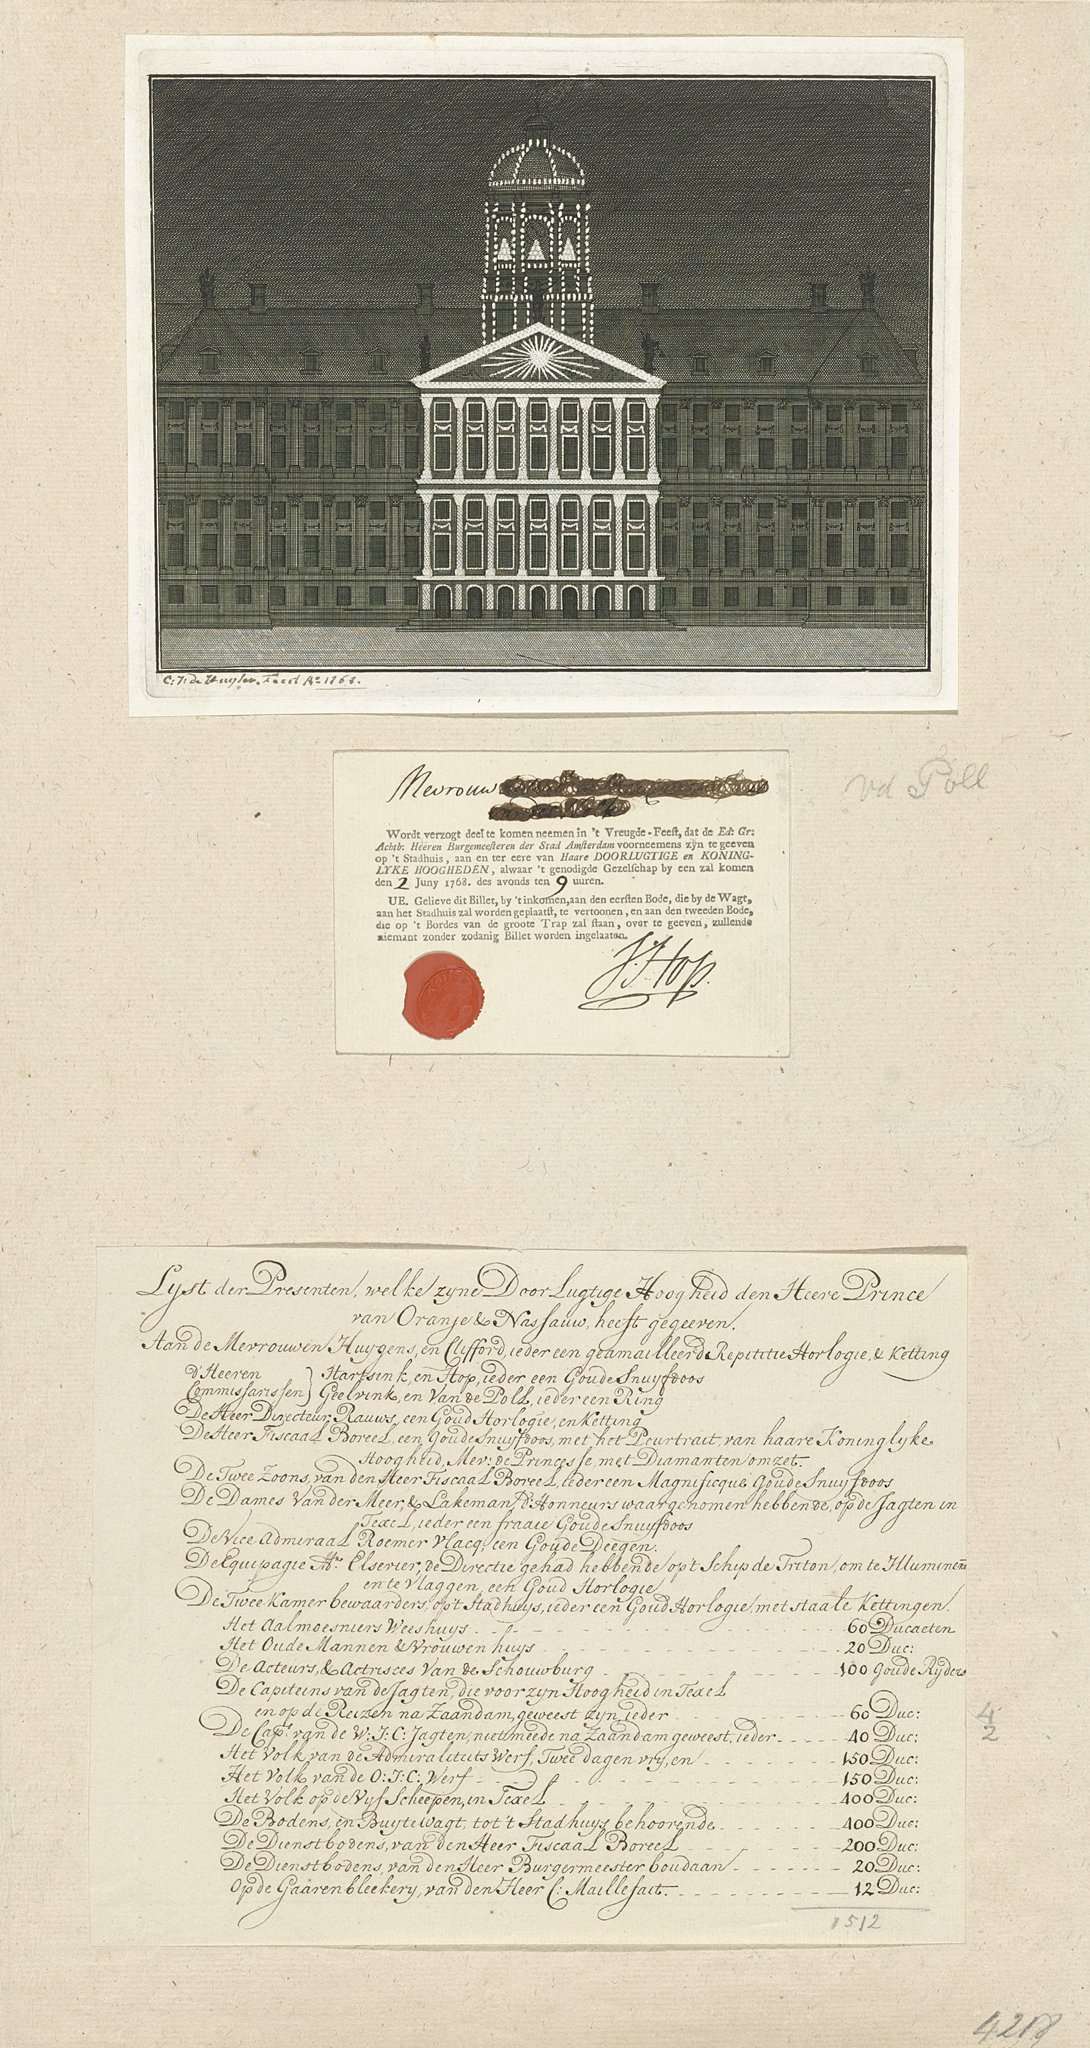 C: J: de Huyser. Fecit Ao. 1768.
Mevrouw
vd Poll
Wordt verzogt deel te komen neemen in 't Vreugde-Feest, dat de Ed: Gr:
Achtb: Heeren Burgemeesteren der Stad Amsterdam voorneemens zyn te geeven
op 't Stadhuis, aan en ter eere van Haare DOORLUGTIGE en KONING-
LYKE HOOGHEDEN, alwaar 't genodigde Gezelschap by een zal komen
den 2 Juny 1768. des avonds ten 9 uuren.
UE. Gelieve dit Billet, by 't inkomen, aan den eersten Bode, die by de Wagt,
aan het Stadhuis zal worden geplaatst, te vertoonen, en aan den tweeden Bode,
die op 't Bordes van de groote Trap zal staan, over te geeven, zullende
niemant zonder zodanig Billet worden ingelaaten.
J: Hop.
Lyst der Presenten, welke zyne Door Lugtige Hoogheid den Heere Prince
van Oranje & Nassauw, heeft gegeeven.
Aan de Mevrouwen Huygens, en Clifford, ieder een geamailleerde Repititie Horlogie, & Ketting
d'Heeren Commissarissen } Hartsink, en Hop, ieder een Goude Snuyfdoos
Geelvink, en Van de Poll, ieder een Ring
De Heer Directeur, Rauws, een Goud Horlogie, en Ketting
De Heer Fiscaal Boreel, een Goude Snuyfdoos, met het Peurtrait, van haare Koninglyke
Hoogheid, Mev: de Princesse, met Diamanten omzet.
De Twee Zoons, van den Heer Fiscaal Boreel, ieder een Magnificque Goude Snuyfdoos
De Dames Van der Meer, & Lakeman, d'Honneurs waargenomen hebbende, op de Jagten in
Texel, ieder een fraaie Goude Snuyfdoos
De Vice Admiraal Roemer Vlacq, een Goude Deegen.
De Equipagie Mr. Elsevier, de Directie gehad hebbende op 't Schip de Triton, om te Illumineren
en te Vlaggen, een Goud Horlogie
De Twee Kamerbewaarders, op 't Stadhuys, ieder een Goud Horlogie, met staale Kettingen.
Het Aalmoesniers Weeshuys - - - 60 Ducaeten
Het Oude Mannen & Vrouwen huys - - - 20 Duc:
De Acteurs, & Actrisces Van de Schouwburg - - - 100 Goude Ryders
De Capiteins van de Jagten, die voor zyn Hoogheid in Texel
en op de Reizen na Zaandam, geweest zyn, ieder - - - 60 Duc: 4
De Capt. van de W: I: C: Jagten, niet meede na Zaandam geweest, ieder - - - 40 Duc: 2
Het Volk van de Admiraliteits Werf, Twee dagen vry, en - - - 150 Duc:
Het Volk van de O: I: C: Werf - - - 150 Duc:
Het Volk op de Vyf Scheepen, in Texel - - - 400 Duc:
De Bodens, en Buytewagt, tot 't Stadhuys behoorende - - - 400 Duc:
De Dienstbodens, van den Heer Fiscaal Boreel - - - 200 Duc:
De Dienstbodens, van den Heer Burgermeester boudaan - - - 20 Duc:
Op de Gaarenbleekery, van den Heer C: Maillefait. - - - 12 Duc:
1512
4218